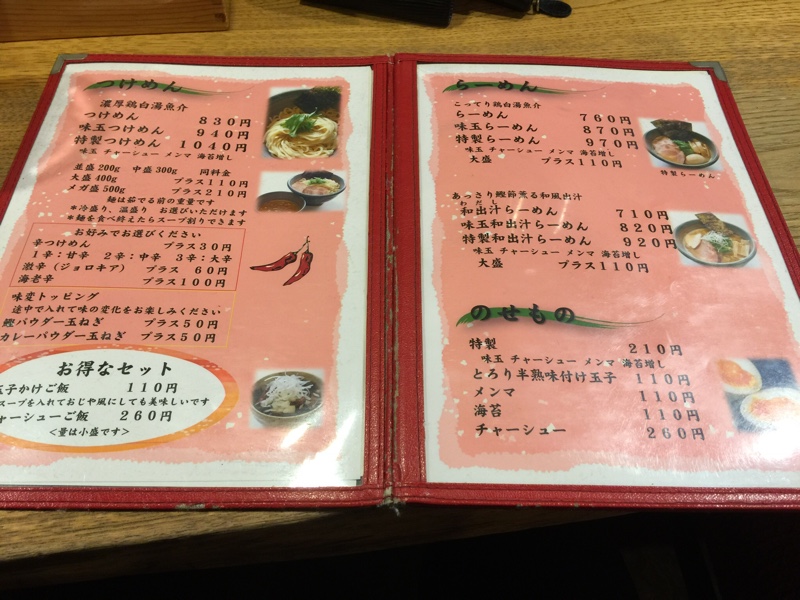 つけめん
濃厚鶏白湯魚介
つけめん 830円
味玉つけめん 940円
特製つけめん 1040円
味玉 チャーシュー メンマ 海苔増し
並盛 200g 中盛 300g 同料金
大盛 400g プラス110円
メガ盛 500g プラス210円
麺は茹でる前の重量です
*冷盛り、温盛り お選びいただけます
*麺を食べ終えたらスープ割りできます
お好みでお選びください
辛つけめん プラス30円
1辛:甘辛 2辛:中辛 3辛:大辛
激辛(ジョロキア) プラス 60円
海老辛 プラス100円
味変トッピング
途中で入れて味の変化をお楽しみください
鰹パウダー玉ねぎ プラス50円
カレーパウダー玉ねぎ プラス50円
お得なセット
玉子かけご飯 110円
スープを入れておじや風にしても美味しいです
チャーシューご飯 260円
<量は小盛です>
らーめん
こってり鶏白湯魚介
らーめん 760円
味玉らーめん 870円
特製らーめん 970円
味玉 チャーシュー メンマ 海苔増し
大盛 プラス110円
特製らーめん
あっさり鰹節薫る和風出汁
わだし
和出汁らーめん 710円
味玉和出汁らーめん 820円
特製和出汁らーめん 920円
味玉 チャーシュー メンマ 海苔増し
大盛 プラス110円
のせもの
特製 210円
味玉 チャーシュー メンマ 海苔増し
とろり半熟味付け玉子 110円
メンマ 110円
海苔 110円
チャーシュー 260円